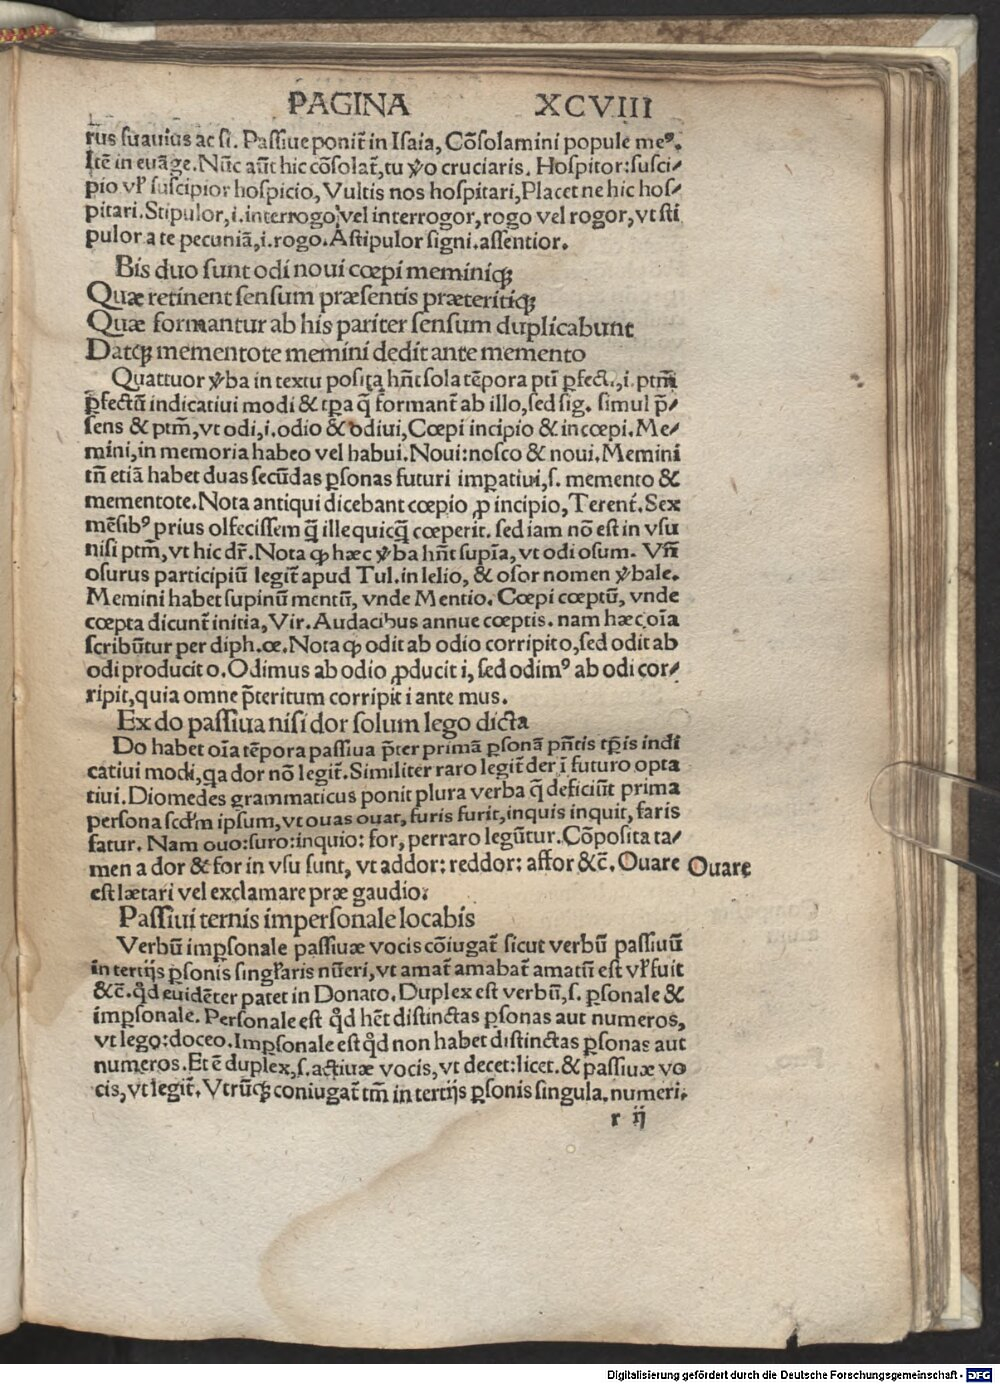 PAGINA XCVIII
rus suauius ac si. Passiue ponit̃ in Isaia, Cõsolamini popule meꝰ.
Itẽ in euãge. Nũc aũt hic cõsolat̃, tu ṽo cruciaris. Hospitor: susci⸗
pio vl̃ suscipior hospicio, Vultis nos hospitari, Placet ne hic hos⸗
pitari. Stipulor, i. interrogo, vel interrogor, rogo vel rogor, vt sti
pulor a te pecuniã, i. rogo. Astipulor signi. assentior.
Bis duo sunt odi noui cœpi meminiqꝫ
Quæ retinent sensum præsentis præteritiqꝫ
Quæ formantur ab his pariter sensum duplicabunt
Datqꝫ mementote memini dedit ante memento
Quattuor ṽba in textu posita hñt sola tẽpora ptĩ ꝑfect., i. ptm̃
ꝑfectũ indicatiui modi & tꝑa q̃ formant̃ ab illo, sed sig. simul p̃⸗
sens & ptm̃, vt odi, i. odio & odiui, Cœpi incipio & incœpi. Me⸗
mini, in memoria habeo vel habui. Noui: nosco & noui. Memini
tñ etiã habet duas secũdas ꝑsonas futuri imꝑatiui, s. memento &
mementote. Nota antiqui dicebant cœpio ꝓ incipio, Terent̃. Sex
mẽsibꝰ prius olfecissem q̃ ille quicq̃ cœperit. sed iam nõ est in vsu
nisi ptm̃, vt hic dr̃. Nota ꝙ hæc ṽba hñt supĩa, vt odi osum. Vñ
osurus participiũ legit̃ apud Tul. in lelio, & osor nomen ṽbale.
Memini habet supinũ mentũ, vnde Mentio. Cœpi cœptũ, vnde
cœpta dicunt̃ initia, Vir. Audacibus annue cœptis. nam hæc oĩa
scribũtur per diph. œ. Nota ꝙ odit ab odio corripit o, sed odit ab
odi producit o. Odimus ab odio ꝓducit i, sed odimꝰ ab odi cor⸗
ripit, quia omne p̃teritum corripit i ante mus.
Ex do passiua nisi dor solum lego dicta
Do habet oĩa tẽpora passiua p̃ter primã ꝑsonã pñtis tꝑis indi
catiui modi, qa dor nõ legit̃. Similiter raro legit̃ der ĩ futuro opta
tiui. Diomedes grammaticus ponit plura verba q̃ deficiũt prima
persona scd̃m ipsum, vt ouas ouat, furis furit, inquis inquit, faris
fatur. Nam ouo: furo: inquio: for, perraro legũtur. Cõposita ta⸗
men a dor & for in vsu sunt, vt addor: reddor: affor &c̃. Ouare Ouare
est lætari vel exclamare præ gaudio.
Passiui ternis impersonale locabis
Verbũ imꝑsonale passiuæ vocis cõiugat̃ sicut verbũ passiuũ
in tertijs ꝑsonis singl̃aris nũeri, vt amat̃ amabat̃ amatũ est vl̃ fuit
&c̃. qd̃ euidẽter patet in Donato. Duplex est verbũ, s. ꝑsonale &
imꝑsonale. Personale est qd̃ hẽt distinctas ꝑsonas aut numeros,
vt lego: doceo. Imꝑsonale est qd̃ non habet distinctas ꝑsonas aut
numeros. Et ẽ duplex, s. actiuæ vocis, vt decet: licet. & passiuæ vo
cis, vt legit̃. Vtrũqꝫ coniugat̃ tm̃ in tertijs ꝑsonis singula. numeri.
r ij
Digitalisierung gefördert durch die Deutsche Forschungsgemeinschaft - DFG